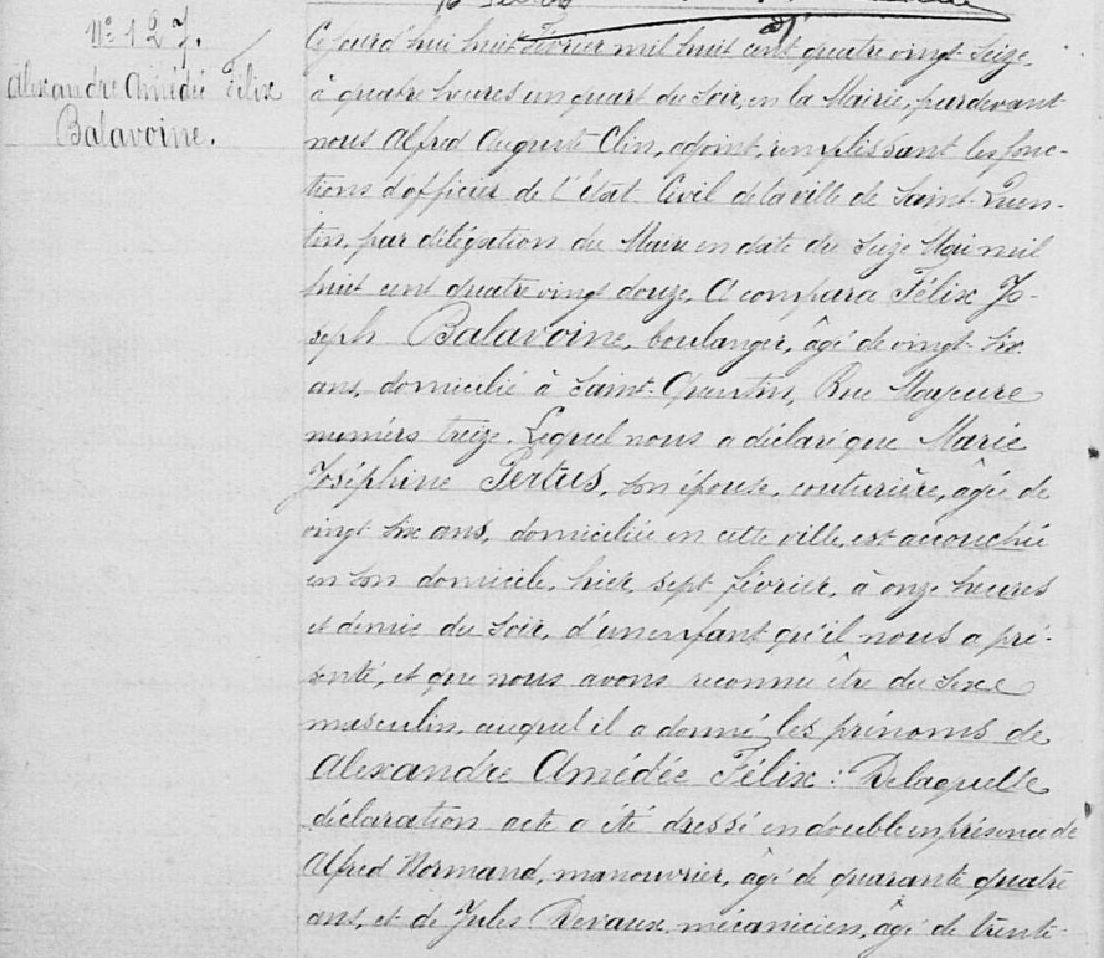 N° 127.
Alexandre Amédée Félix
Balavoine.
Cejourd'hui huit Février mil huit cent quatre vingt seize,
à quatre heures un quart du soir, en la Mairie, pardevant
nous Alfred Auguste Clin, adjoint, remplissant les fonc-
tions d'officier de l'état Civil de la ville de Saint-Quen-
tin, par délégation du Maire en date du seize Mai mil
huit cent quatre vingt douze, A comparu Félix Jo-
seph Balavoine, boulanger, âgé de vingt-six
ans, domicilié à Saint-Quentin, Rue Mayeure
numéro treize. Lequel nous a déclaré que Marie
Joséphine Pertus, son épouse, couturière, âgée de
vingt six ans, domiciliée en cette ville, est accouchée
en son domicile, hier, sept février, à onze heures
et demie du soir, d'un enfant qu'il nous a pré-
senté, et que nous avons reconnu être du sexe
masculin, auquel il a donné les prénoms de
Alexandre Amédée Félix : De laquelle
déclaration acte a été dressé en double en présence de
Alfred Normand, manouvrier, âgé de quarante quatre
ans, et de Jules Devaux, mécanicien, âgé de trente-